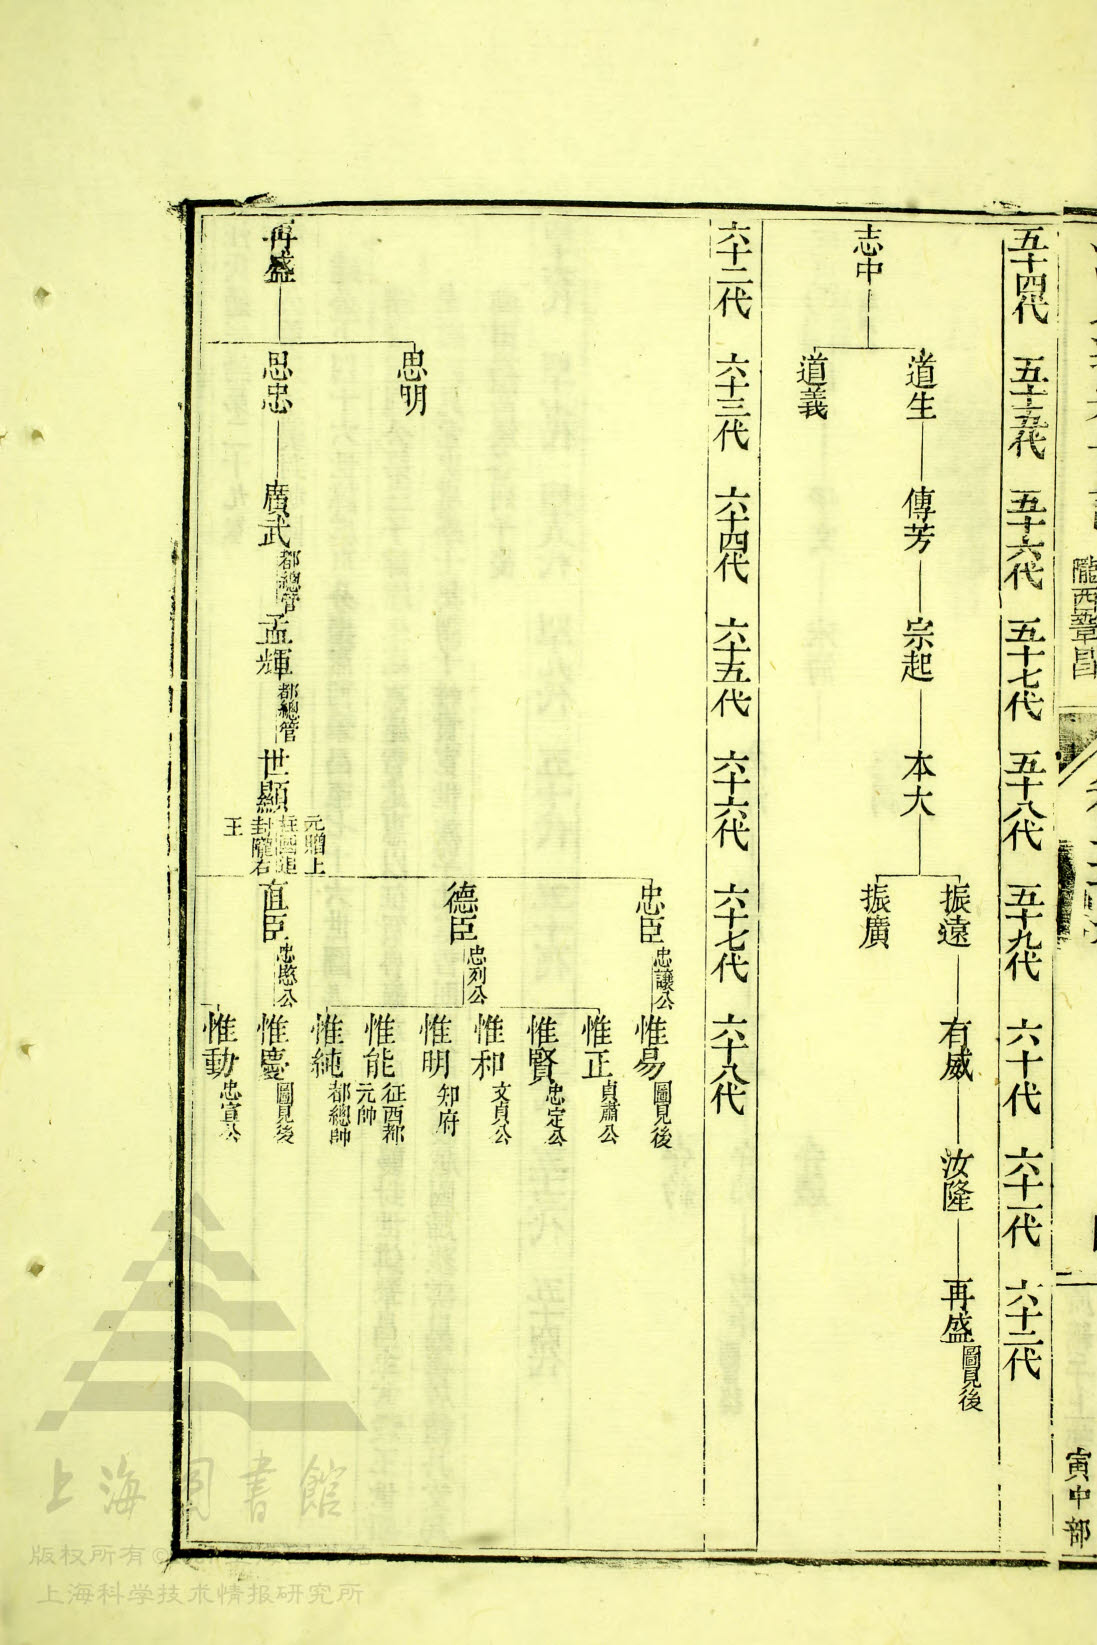 隴西鞏昌
寅中部
五十四代 五十五代 五十六代 五十七代 五十八代 五十九代 六十代 六十一代 六十二代
志中
道生 傳芳 宗起 本大
道義
振遠 有威 汝隆 再盛 圖見後
振廣
六十二代 六十三代 六十四代 六十五代 六十六代 六十七代 六十八代
再盛
思明
思忠 廣武 都總管 孟輝 都總管 世顯 元贈上柱國追封隴右王
忠臣 忠讓公
惟易 圖見後
德臣 忠列公
惟正 貞肅公
惟賢 忠定公
惟和 文貞公
惟明 知府
惟能 征西都元帥
惟純 都總帥
直臣 忠愍公
惟慶 圖見後
惟動 忠宣公
上海图書館
版权所有©
上海科学技术情报研究所